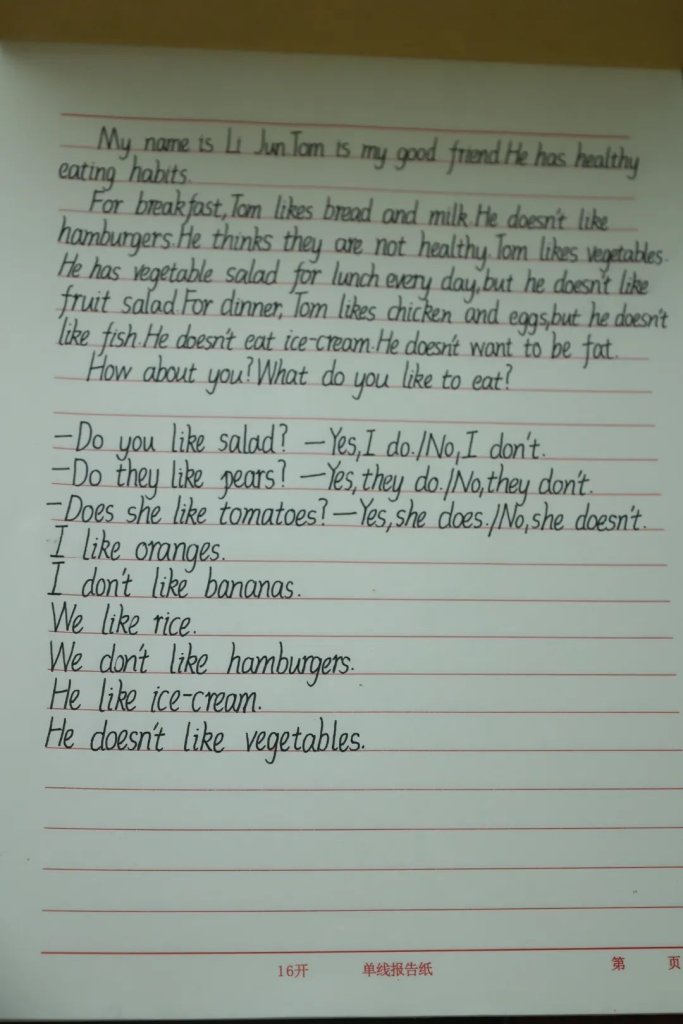 My name is Li Jun.Tom is my good friend.He has healthy
eating habits.
For breakfast,Tom likes bread and milk.He doesn't like
hamburgers.He thinks they are not healthy.Tom likes vegetables.
He has vegetable salad for lunch every day,but he doesn't like
fruit salad.For dinner, Tom likes chicken and eggs,but he doesn't
like fish.He doesn't eat ice-cream.He doesn't want to be fat.
How about you?What do you like to eat?
—Do you like salad? —Yes,I do./No,I don't.
—Do they like pears? —Yes,they do./No,they don't.
—Does she like tomatoes?—Yes,she does./No,she doesn't.
I like oranges.
I don't like bananas.
We like rice.
We don't like hamburgers.
He like ice-cream.
He doesn't like vegetables.
16开 单线报告纸 第 页